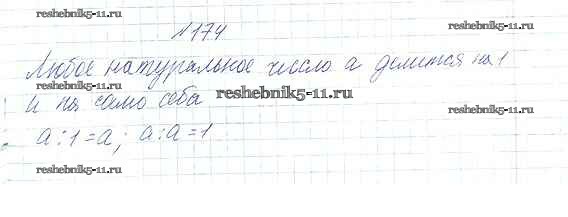 reshebnik5-11.ru
№174
reshebnik5-11.ru
Любое натуральное число a делится на 1
и на само себя
reshebnik5-11.ru
reshebnik5-11.ru
a : 1 = a; a : a = 1
reshebnik5-11.ru
reshebnik5-11.ru